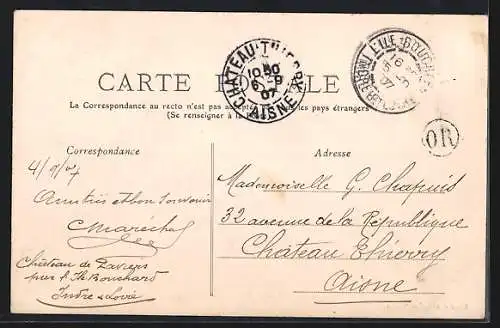 CARTE POSTALE
La Correspondance au recto n'est pas acceptée par tous les pays étrangers
(Se renseigner à la Poste)
CHATEAU-THIERRY
10 40
6 -9
07
AISNE
L'ILE-BOUCHARD
INDRE-ET-LOIRE
OR
Correspondance
4/9/07
Amitiés et bon souvenir
Maréchal
Château de
près l'Ile Bouchard
Indre & Loire
Adresse
Mademoiselle G. Chapuis
32 avenue de la République
Château Thierry
Aisne